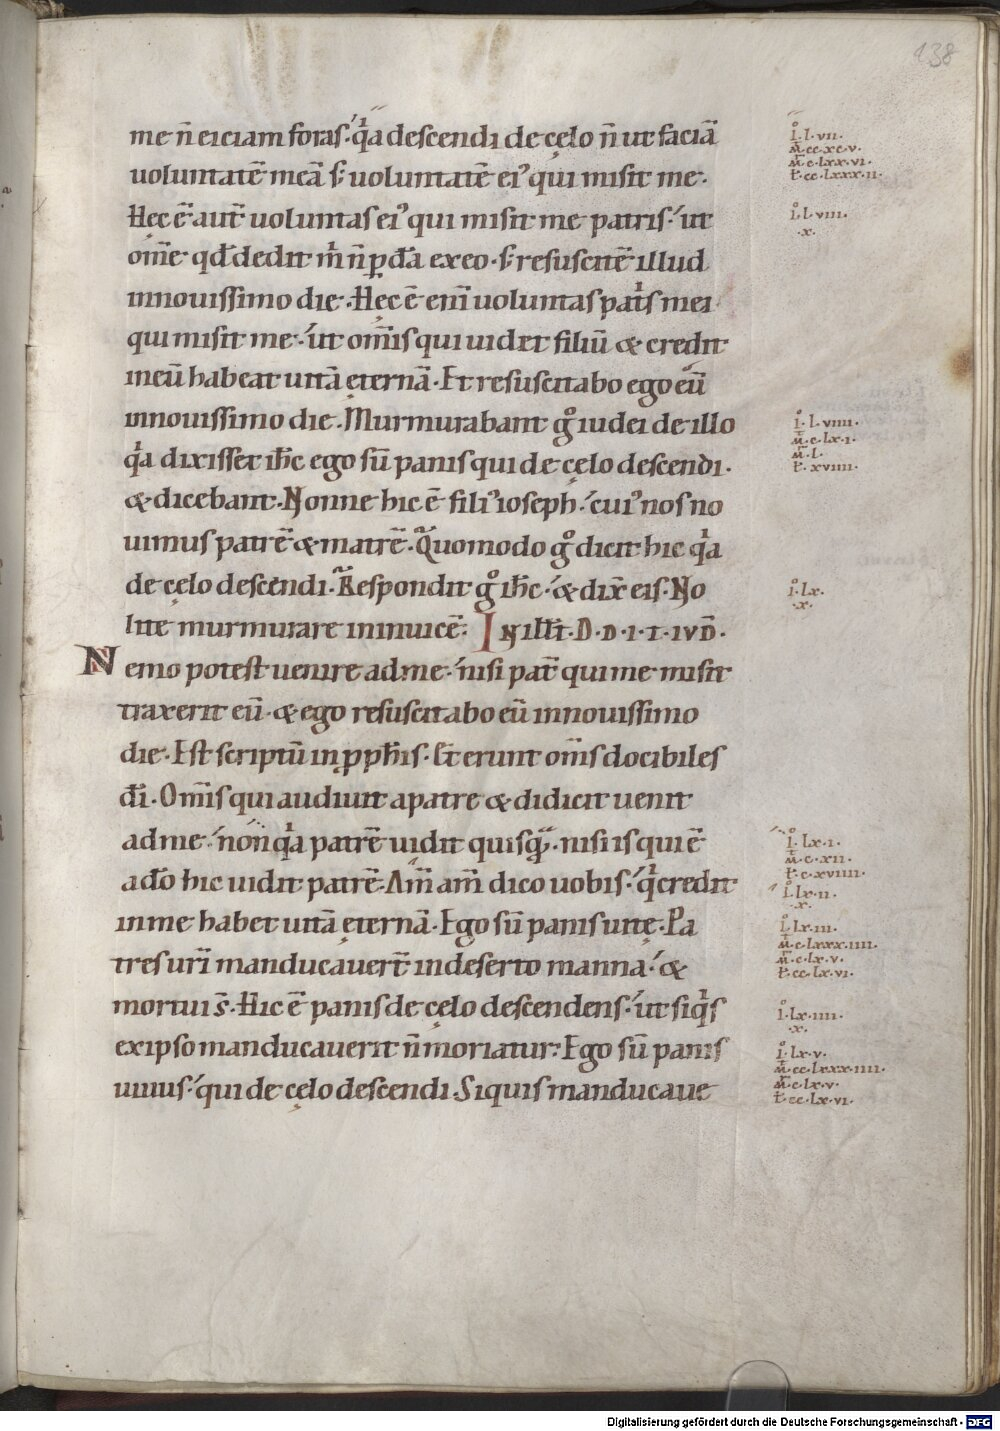 138
me n̄ eiciam foras·́ qͥa descendi de cęlo n̄ ut faciā
uoluntatē meā s; uoluntatē eiꝰ qui misit me·
Hęc ē aut̄ uoluntas eiꝰ qui misit me patris·́ ut
om̄e qd̄ dedit m̄ n̄ ꝑdā ex eo· s; resuscitē illud
innouissimo die· Hęc ē eni̅ uoluntas pat̄s mei
qui misit me·́ ut om̄is qui uidet filiū & credit
ineū habeat uitā ęternā· Et resuscitabo ego eū
innouissimo die· Murmurabant gͦ iudei de illo
qͥa dixisset ih̄c ego sū panis qui de cęlo descendi·
& dicebant· Nonne hic ē filiꝰ ioseph·́ cuiꝰ nos no
uimus patrē & matrē· Quomodo gͦ dicit hic qͥa
de cęlo descendi· Respondit gͦ ih̄c·́ & dix̄ eis· No
lite murmurare in inuicē· IN illt̄· D·D·I·T·IVD̄·
Nemo potest uenire ad me·́ nisi pat̄ qui me misit
traxerit eū· & ego resuscitabo eū innouissimo
die· Est scriptū in ꝓph̄is· Et erunt om̄s docibiles
dī· Om̄is qui audiuit a patre & didicit uenit
ad me·́ non qͥa patrē uidit quisqͣ̄· nisi is qui ē
a dō hic uidit patrē· Am̄ am̄ dico uobis·́ qͥ credit
in me habet uitā ęternā· Ego sū panis uitę· Pa
tres ur̄i manducauer̄t indeserto manna·́ &
mortui s̄· Hic ē panis de cęlo descendens·́ ut siqͥs
ex ipso manducauerit n̄ moriatur· Ego sū panis
uiuus·́ qui de cęlo descendi· Siquis manducaue
I· l·vii·
M̄· cc·xc·v·
M̄· c·lxx·vi·
L̄· cc·lxxx·ii·
I· l·viii·
·x·
I· l·viiii·
M̄· c·lx·i·
M̄· l·
L̄· xviiii·
I· lx·
·x·
I· lx·i·
M̄· c·xii·
L̄· c·xviiii·
I· lx·ii·
·x·
I· lx·iii·
M̄· c·lxxx·iiii·
M̄· c·lx·v·
L̄· cc·lx·vi·
I· lx·iiii·
·x·
I· lx·v·
M̄· cc·lxxx·iiii·
M̄· c·lx·v·
L̄· cc·lx·vi·
Digitalisierung gefördert durch die Deutsche Forschungsgemeinschaft - DFG